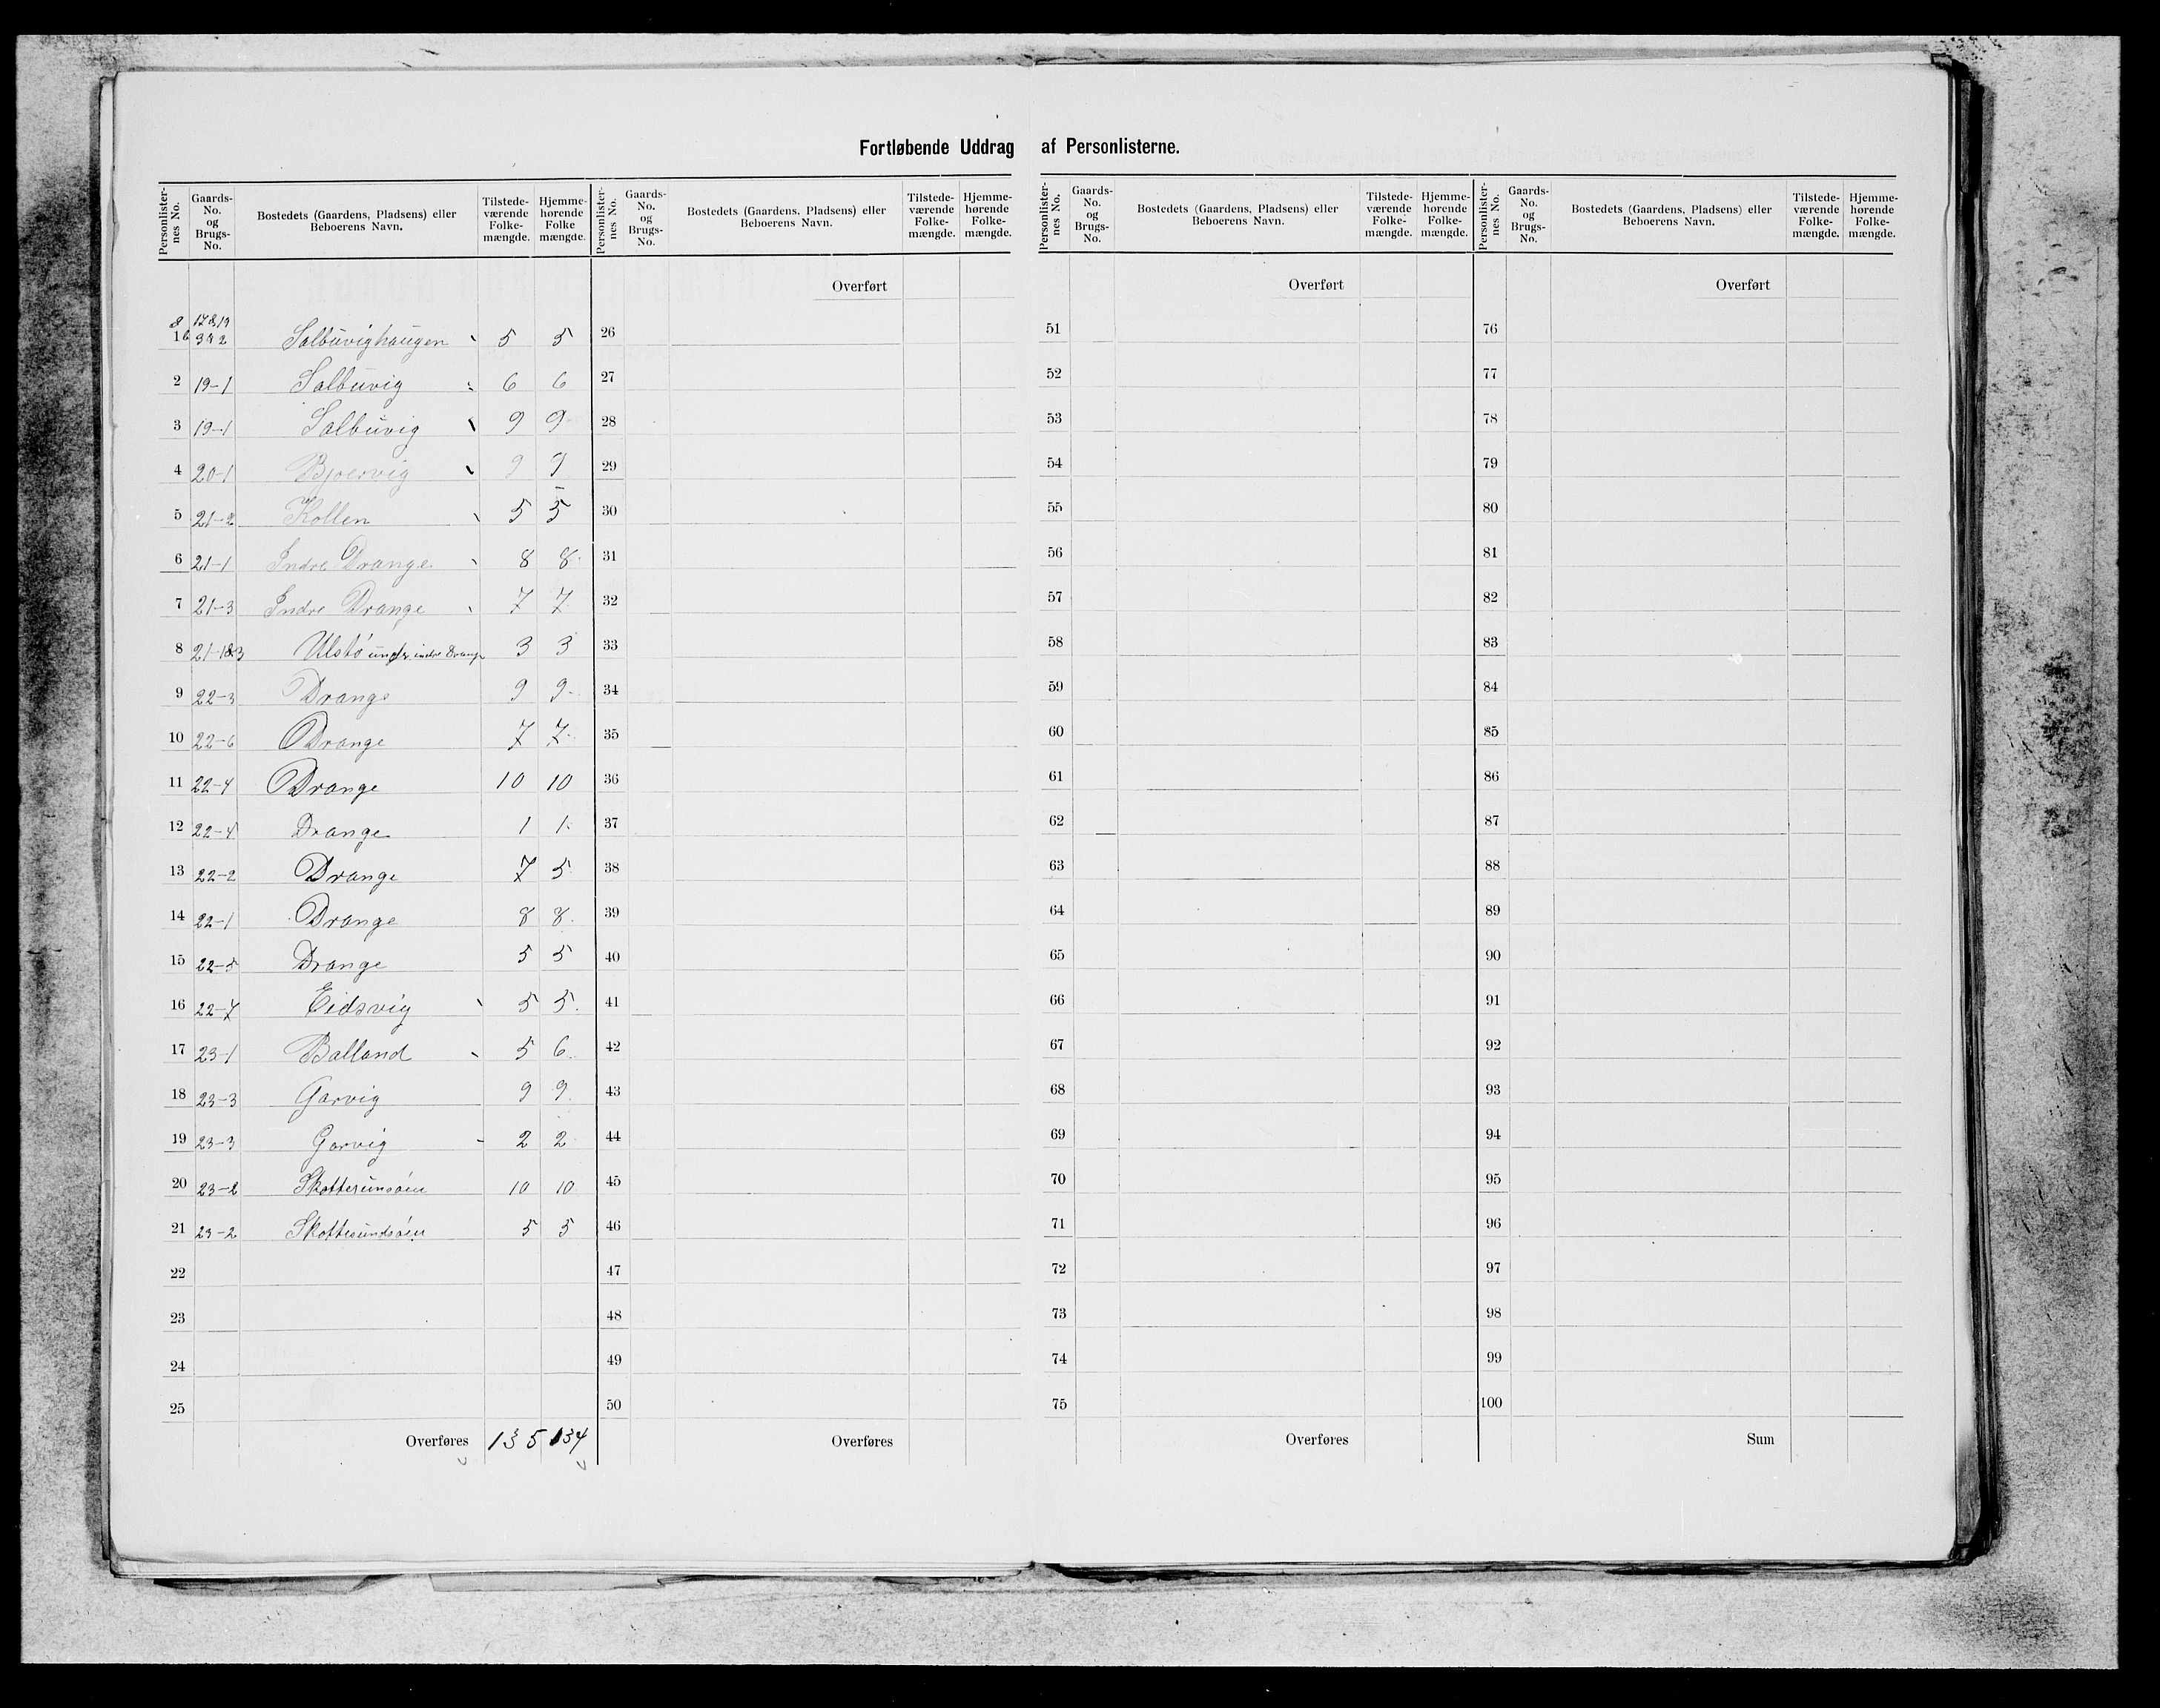 Fortløbende Uddrag af Personlisterne.
Personlister-nes No. | Gaards-No. og Brugs-No. | Bostedets (Gaardens, Pladsens) eller Beboerens Navn. | Tilstede-værende Folke-mængde. | Hjemme-hørende Folke mængde.
Personlister-nes No. | Gaards-No. og Brugs-No. | Bostedets (Gaardens, Pladsens) eller Beboerens Navn. | Tilstede-værende Folke-mængde. | Hjemme-hørende Folke-mængde.
Personlister-nes No. | Gaards-No. og Brugs-No. | Bostedets (Gaardens, Pladsens) eller Beboerens Navn. | Tilstede-værende Folke-mængde. | Hjemme-hørende Folke-mængde.
Personlister-nes No. | Gaards-No. og Brugs-No. | Bostedets (Gaardens, Pladsens) eller Beboerens Navn. | Tilstede-værende Folke-mængde. | Hjemme-hørende Folke-mængde.
17 & 19
1 Salbuvighaugen 5 5
2 19-1 Salbuvig 6 6
3 19-1 Salbuvig 9 9
4 20-1 Bjoervig 9 9
5 21-2 Kollen 5 5
6 21-1 Indre Drange 8 8
7 21-3 Indre Drange 7 7
8 21-1&3 Ulstö under indre Drange 3 3
9 22-3 Drange 9 9
10 22-6 Drange 7 7
11 22-4 Drange 10 10
12 22-4 Drange 1 1
13 22-2 Drange 7 5
14 22-1 Drange 8 8
15 22-5 Drange 5 5
16 22-7 Eidsvig 5 5
17 23-1 Balland 5 6
18 23-3 Garvig 9 9
19 23-3 Garvig 2 2
20 23-2 Skottesunsöen 10 10
21 23-2 Skottesundsöen 5 5
22
23
24
25
Overføres 135 134
Overført
26
27
28
29
30
31
32
33
34
35
36
37
38
39
40
41
42
43
44
45
46
47
48
49
50
Overføres
Overført
51
52
53
54
55
56
57
58
59
60
61
62
63
64
65
66
67
68
69
70
71
72
73
74
75
Overføres
Overført
76
77
78
79
80
81
82
83
84
85
86
87
88
89
90
91
92
93
94
95
96
97
98
99
100
Sum